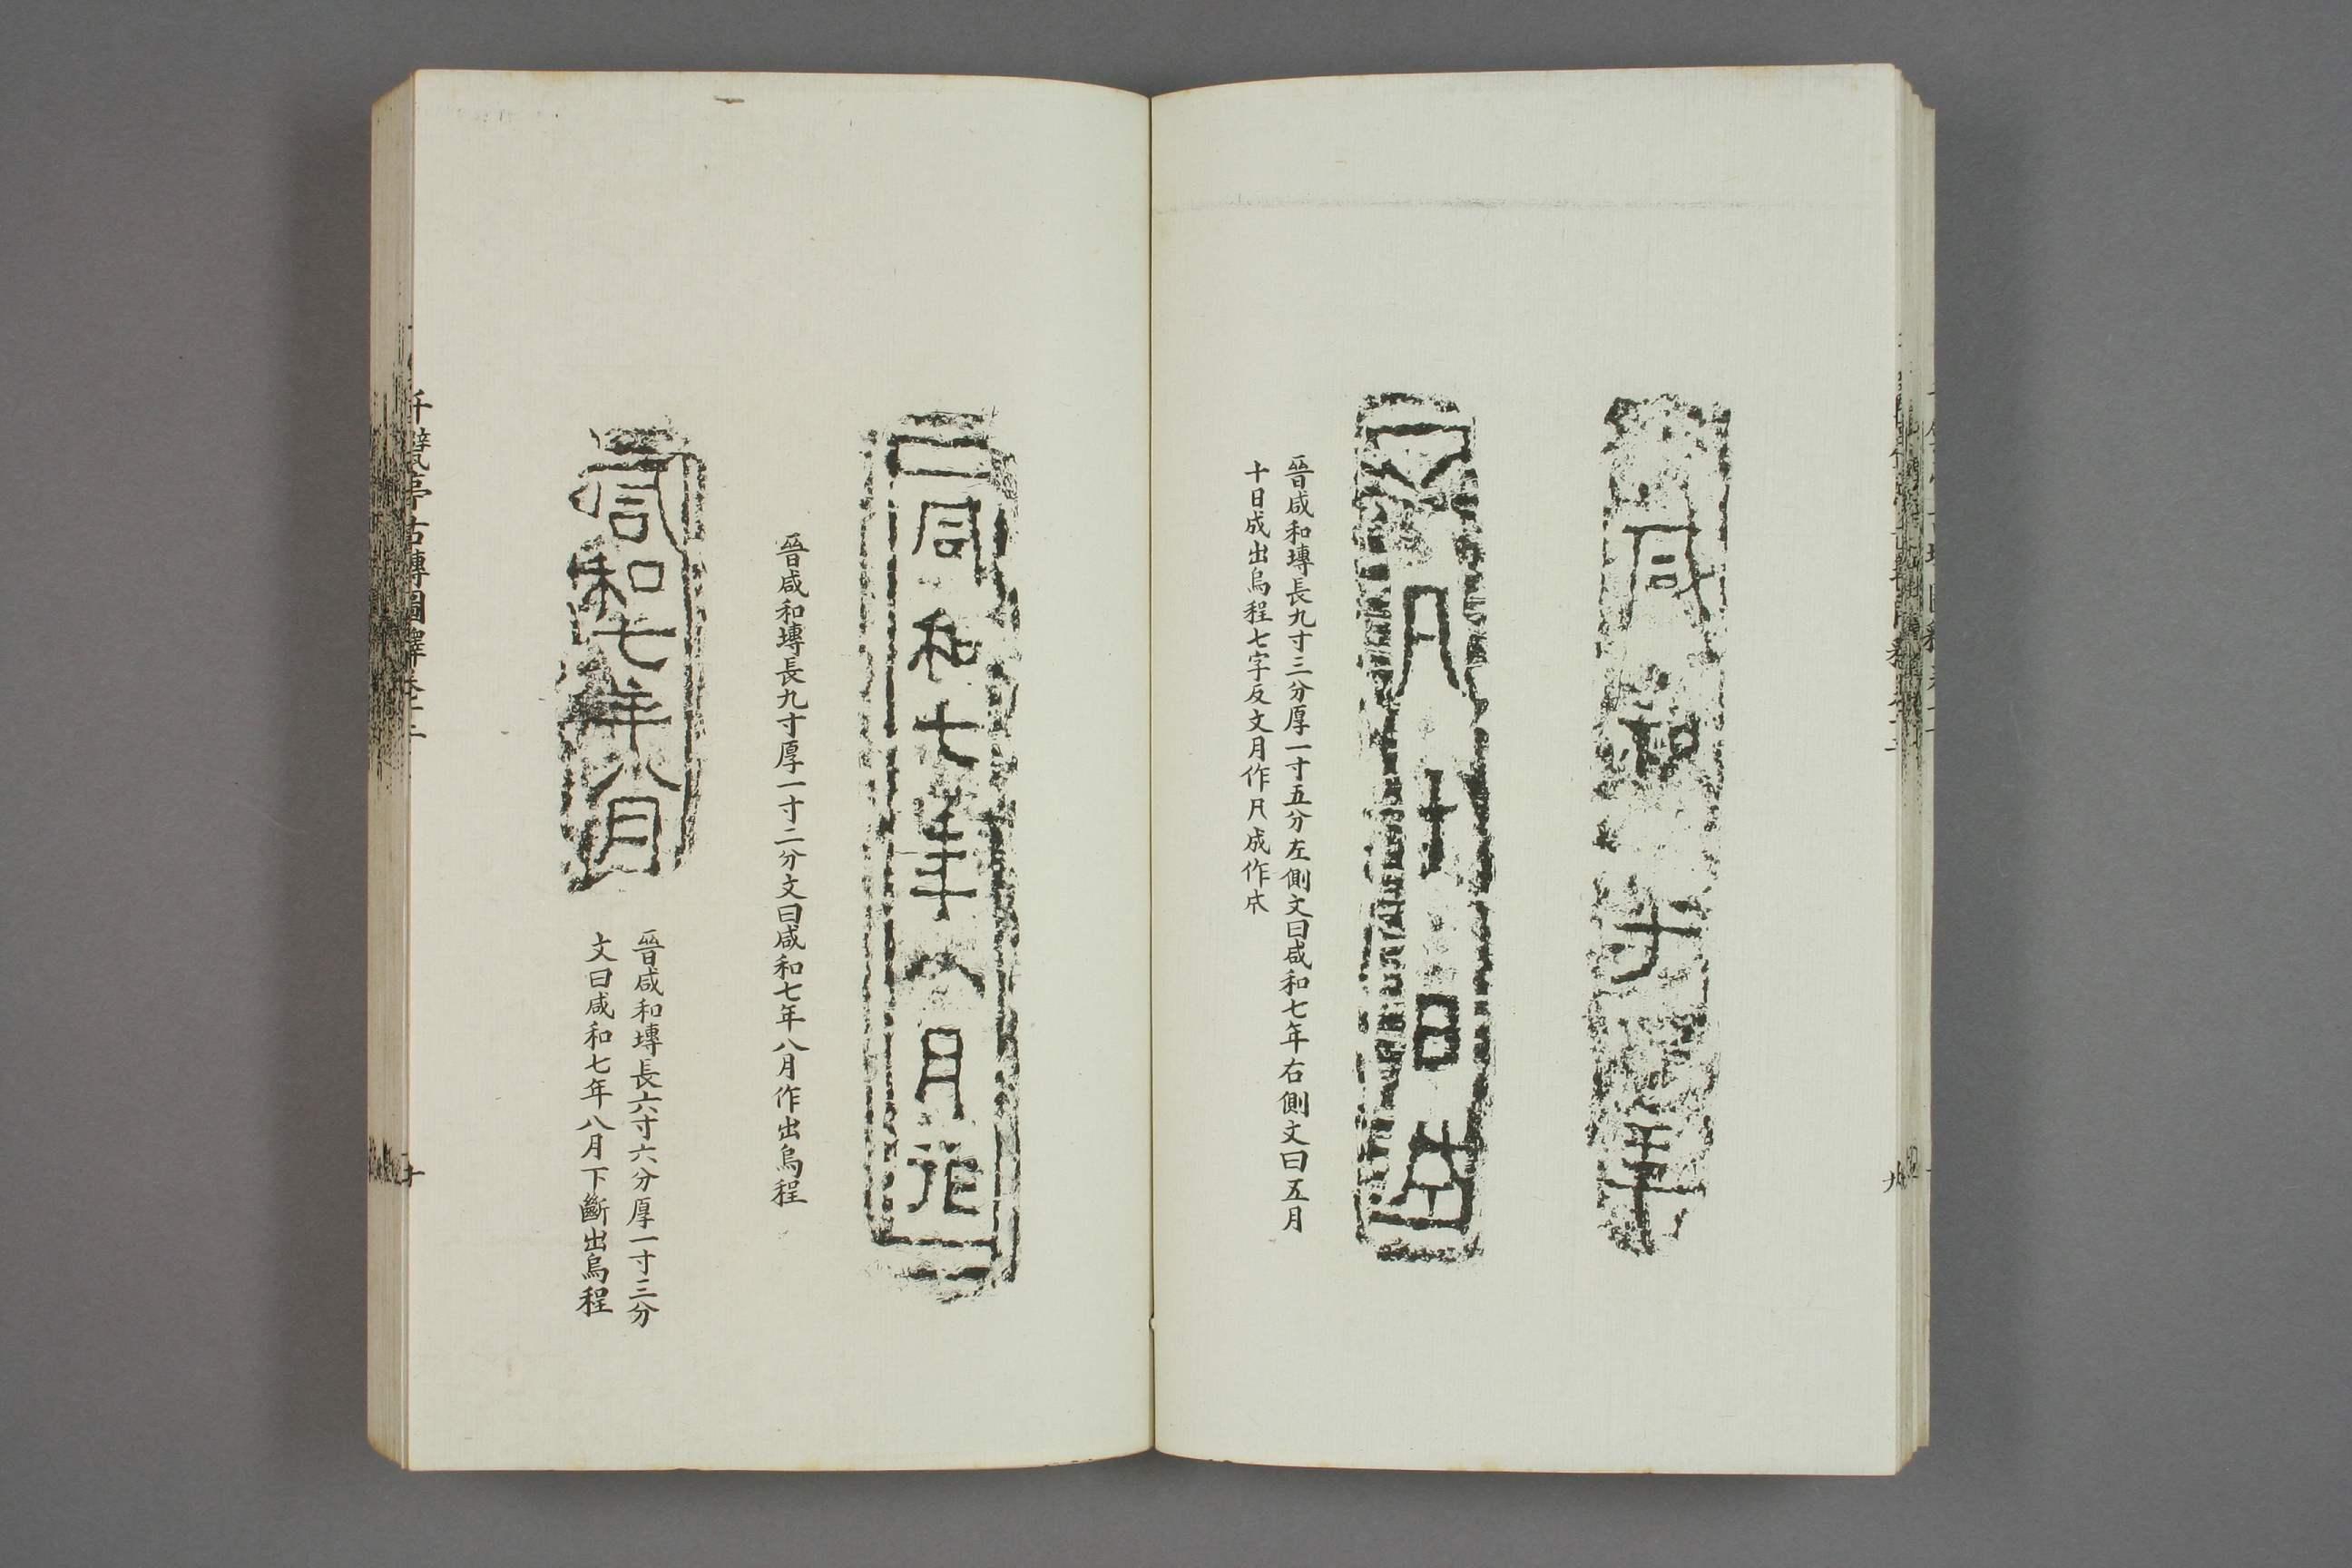 咸和七年
五月十日成
晉咸和塼長九寸三分厚一寸五分左側文曰咸和七年右側文曰五月
十日成出烏程七字反文月作⺆成作𢦩
九
咸和七年八月作
晉咸和塼長九寸厚一寸二分文曰咸和七年八月作出烏程
咸和七年八月
晉咸和塼長六寸六分厚一寸三分
文曰咸和七年八月下斷出烏程
千甓亭古塼圖釋卷十二
十